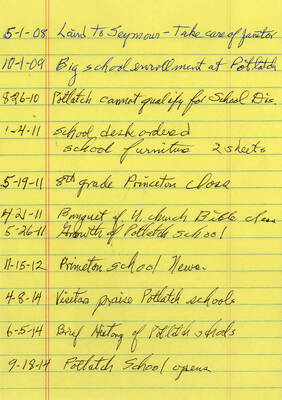 5-1-08 Laird to Seymour - Take care of janitor
10-1-09 Big school enrollment at Potlatch
8-26-10 Potlatch cannot qualify for School Dis.
1-4-11 school desk ordered
school furniture 2 sheets
5-19-11 8th grade Princeton class
4-21-11 Banquet of U. church Bible class
5-26-11 Growth of Potlatch School
11-15-12 Princeton school News
4-8-14 Visitors praise Potlatch schools
6-5-14 Brief History of Potlatch schools
9-18-14 Potlatch School opens